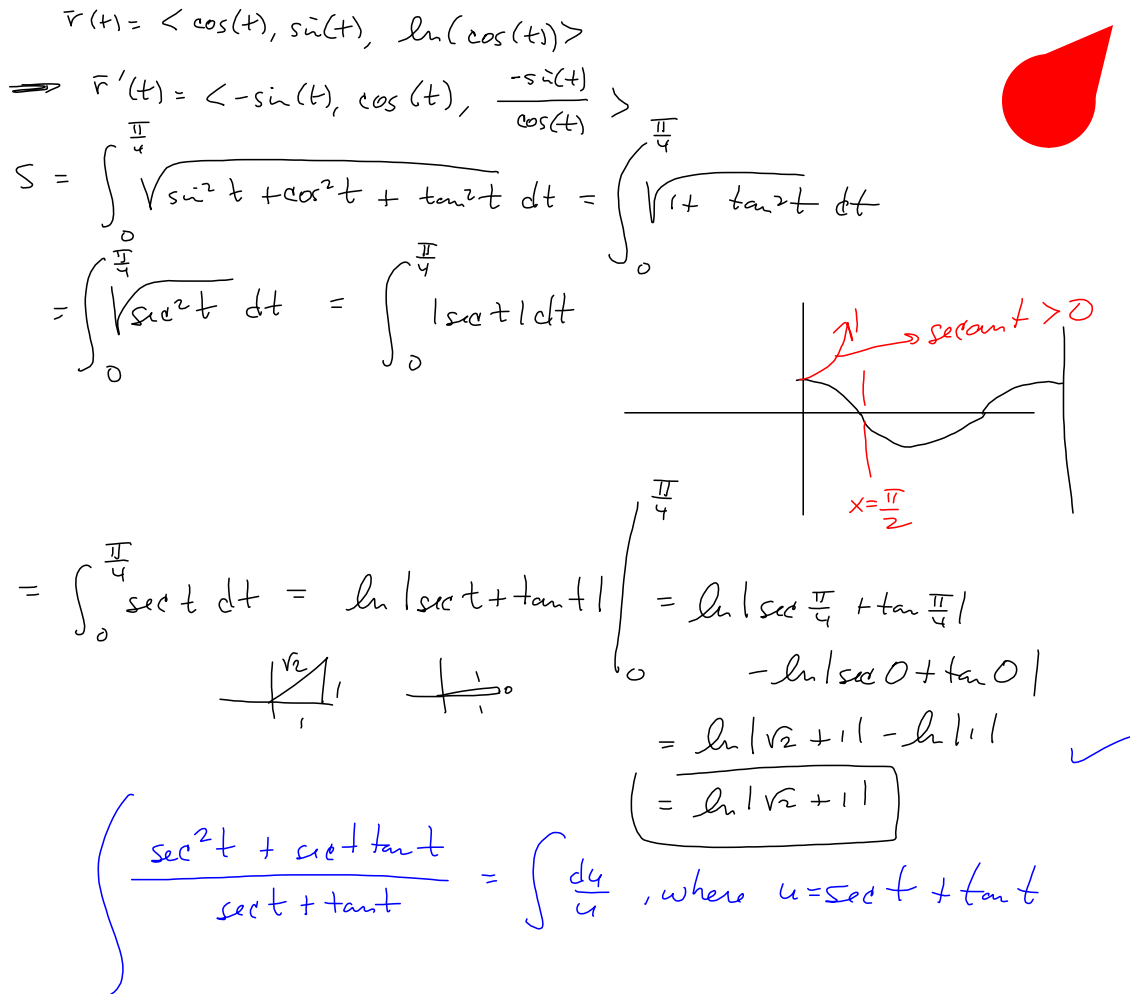 r̄(t) = < cos(t), sin(t), ln(cos(t)) >
⇒ r̄'(t) = < -sin(t), cos(t), -sin(t)/cos(t) >
S = ∫₀^(π/4) √(sin²t + cos²t + tan²t) dt = ∫₀^(π/4) √(1 + tan²t) dt
= ∫₀^(π/4) √(sec²t) dt = ∫₀^(π/4) |sec t| dt
→ secant > 0
x = π/2
= ∫₀^(π/4) sec t dt = ln|sec t + tan t| |₀^(π/4) = ln|sec π/4 + tan π/4|
- ln|sec 0 + tan 0|
√2 1 1
1 0 1
= ln|√2 + 1| - ln|1|
= ln|√2 + 1|
∫ (sec²t + sec t tan t)/(sec t + tan t) = ∫ du/u , where u = sec t + tan t